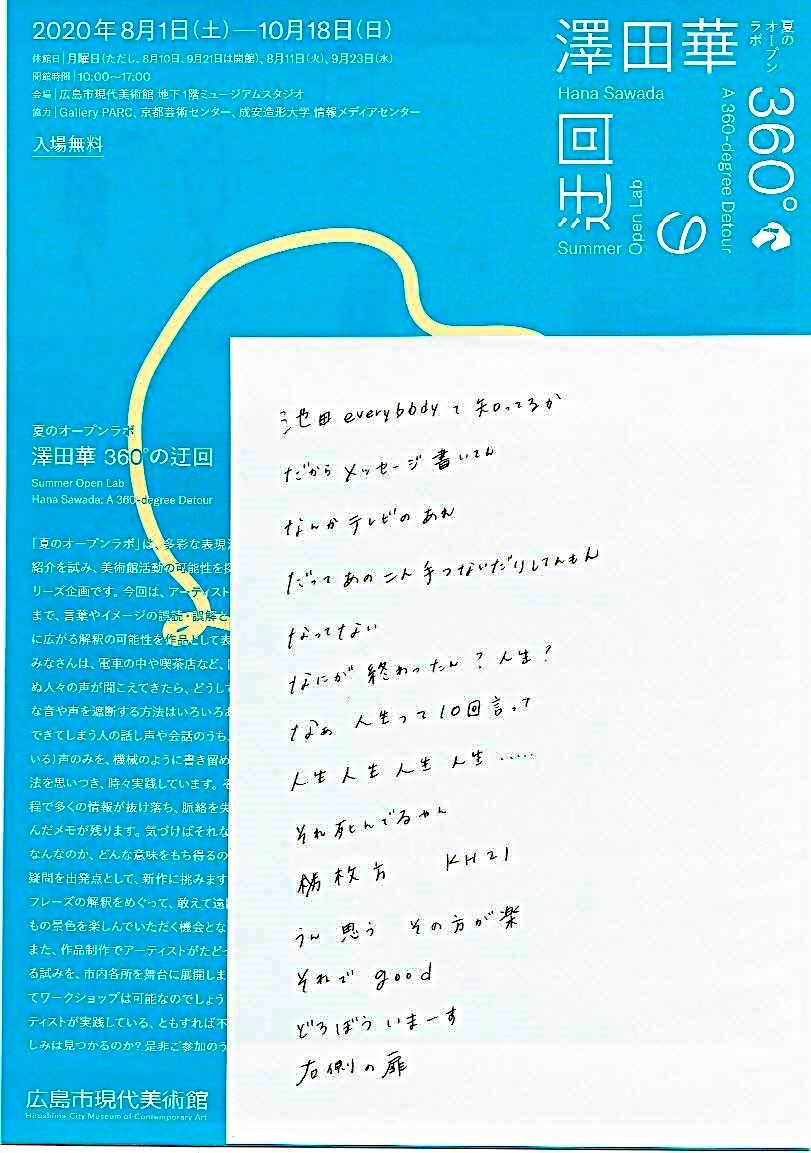 2020年8月1日(土)―10月18日(日)
休館日|月曜日(ただし、8月10日、9月21日は開館)、8月11日(火)、9月23日(水)
開館時間|10:00〜17:00
会場|広島市現代美術館 地下1階ミュージアムスタジオ
協力|Gallery PARC、京都芸術センター、成安造形大学 情報メディアセンター
入場無料
夏の
オープン
ラボ
澤田華
Hana Sawada
360°
の
迂回
A 360-degree Detour
Summer
Open Lab
夏のオープンラボ
澤田華 360°の迂回
Summer Open Lab
Hana Sawada: A 360-degree Detour
「夏のオープンラボ」は、多彩な表現
紹介を試み、美術館活動の可能性を探
リーズ企画です。今回は、アーティスト
まで、言葉やイメージの誤読・誤解と
に広がる解釈の可能性を作品として表
みなさんは、電車の中や喫茶店など、
ぬ人々の声が聞こえてきたら、どうして
な音や声を遮断する方法はいろいろあ
できてしまう人の話し声や会話のうち、
いる)声のみを、機械のように書き留め
法を思いつき、時々実践しています。そ
程で多くの情報が抜け落ち、脈絡を失
んだメモが残ります。気づけばそれな
なんなのか、どんな意味をもち得るの
疑問を出発点として、新作に挑みます
フレーズの解釈をめぐって、敢えて遠
もの景色を楽しんでいただく機会とな
また、作品制作でアーティストがたどっ
る試みを、市内各所を舞台に展開しま
てワークショップは可能なのでしょう
ティストが実践している、ともすれば不
しみは見つかるのか?是非ご参加のう
広島市現代美術館
Hiroshima City Museum of Contemporary Art
池田 everybbdyて 知ってるか
だから メッセージ 書いてん
なんか テレビの あれ
だって あの 二人 手つないだりしてんもん
なってない
なにが 終わったん? 人生?
なぁ 人生って 10回 言って
人生 人生 人生 人生 ......
それ 死んでるやん
楠 枚方 KH21
うん 思う その方が楽
それで good
どろぼう いまーす
右側の扉